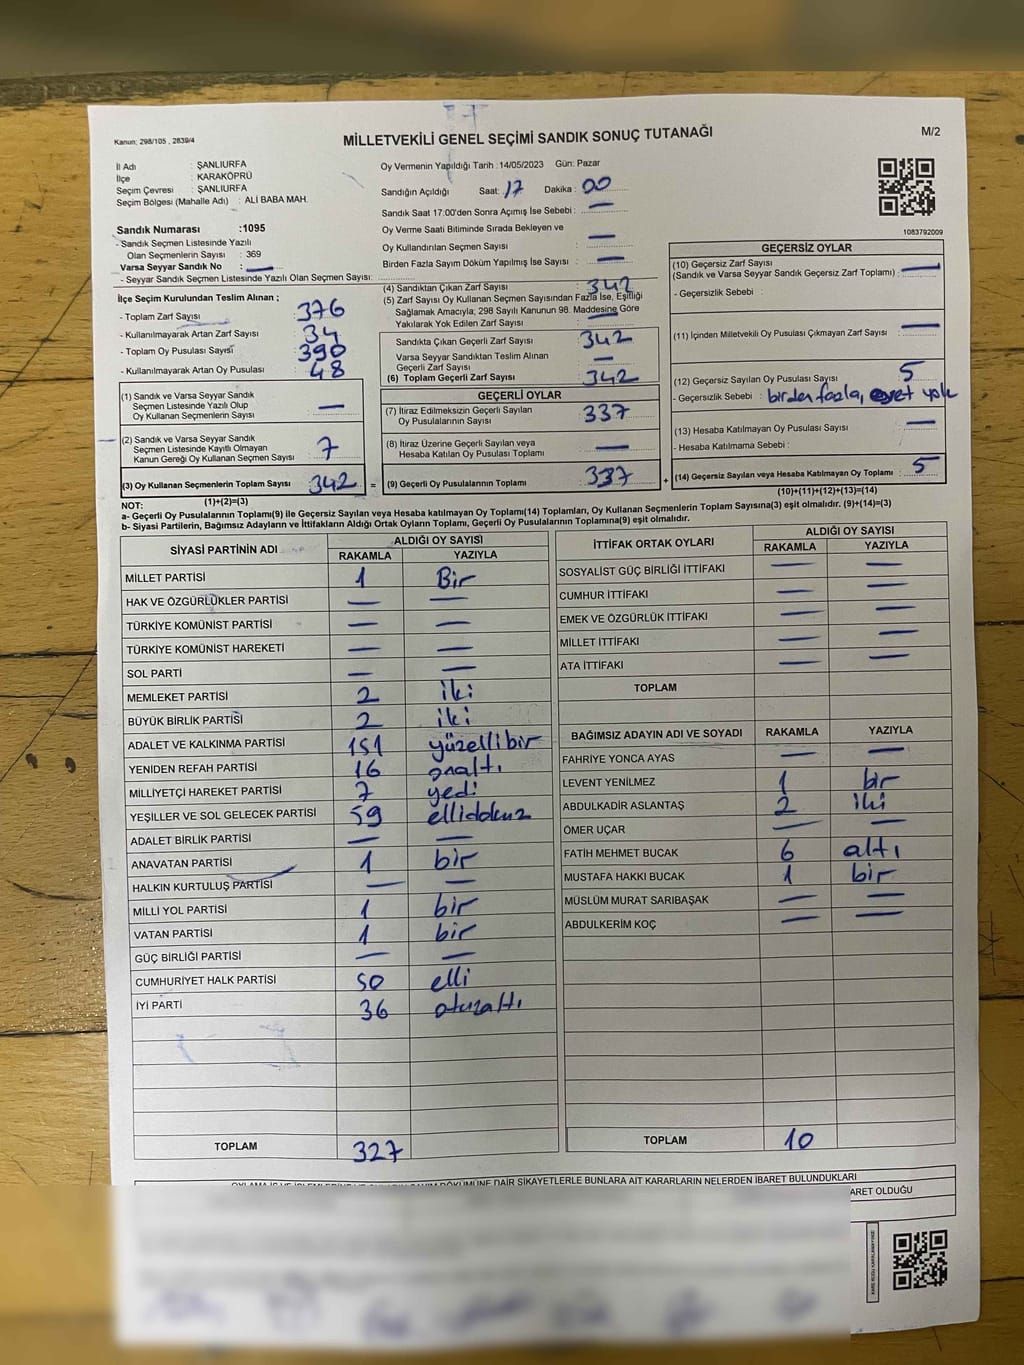 Kanun: 298/105 , 2839/4
MİLLETVEKİLİ GENEL SEÇİMİ SANDIK SONUÇ TUTANAĞI
M/2
İl Adı : ŞANLIURFA
İlçe : KARAKÖPRÜ
Seçim Çevresi : ŞANLIURFA
Seçim Bölgesi (Mahalle Adı) : ALİ BABA MAH.
Sandık Numarası :1095
- Sandık Seçmen Listesinde Yazılı
Olan Seçmenlerin Sayısı : 369
Varsa Seyyar Sandık No : —
- Seyyar Sandık Seçmen Listesinde Yazılı Olan Seçmen Sayısı:
Oy Vermenin Yapıldığı Tarih :14/05/2023 Gün: Pazar
Sandığın Açıldığı Saat: 17 Dakika : 00
Sandık Saat 17:00'den Sonra Açımış İse Sebebi : —
Oy Verme Saati Bitiminde Sırada Bekleyen ve
Oy Kullandırılan Seçmen Sayısı —
Birden Fazla Sayım Döküm Yapılmış İse Sayısı : —
1083792009
İlçe Seçim Kurulundan Teslim Alınan ;
- Toplam Zarf Sayısı : 376
- Kullanılmayarak Artan Zarf Sayısı : 34
- Toplam Oy Pusulası Sayısı : 390
- Kullanılmayarak Artan Oy Pusulası : 48
(1) Sandık ve Varsa Seyyar Sandık
Seçmen Listesinde Yazılı Olup
Oy Kullanan Seçmenlerin Sayısı : —
(2) Sandık ve Varsa Seyyar Sandık
Seçmen Listesinde Kayıtlı Olmayan
Kanun Gereği Oy Kullanan Seçmen Sayısı : 7
(3) Oy Kullanan Seçmenlerin Toplam Sayısı : 342 =
(1)+(2)=(3)
(4) Sandıktan Çıkan Zarf Sayısı : 342
(5) Zarf Sayısı Oy Kullanan Seçmen Sayısından Fazla İse, Eşitliği
Sağlamak Amacıyla; 298 Sayılı Kanunun 98. Maddesine Göre
Yakılarak Yok Edilen Zarf Sayısı : —
Sandıkta Çıkan Geçerli Zarf Sayısı : 342
Varsa Seyyar Sandıktan Teslim Alınan
Geçerli Zarf Sayısı : —
(6) Toplam Geçerli Zarf Sayısı : 342
GEÇERLİ OYLAR
(7) İtiraz Edilmeksizin Geçerli Sayılan
Oy Pusulalarının Sayısı : 337
(8) İtiraz Üzerine Geçerli Sayılan veya
Hesaba Katılan Oy Pusulası Toplamı : —
(9) Geçerli Oy Pusulalarının Toplamı : 337 +
GEÇERSİZ OYLAR
(10) Geçersiz Zarf Sayısı —
(Sandık ve Varsa Seyyar Sandık Geçersiz Zarf Toplamı) :
- Geçersizlik Sebebi :
(11) İçinden Milletvekili Oy Pusulası Çıkmayan Zarf Sayısı : —
(12) Geçersiz Sayılan Oy Pusulası Sayısı : 5
- Geçersizlik Sebebi : birden fazla, evet yok
(13) Hesaba Katılmayan Oy Pusulası Sayısı : —
- Hesaba Katılmama Sebebi :
(14) Geçersiz Sayılan veya Hesaba Katılmayan Oy Toplamı : 5
(10)+(11)+(12)+(13)=(14)
NOT:
a- Geçerli Oy Pusulalarının Toplamı(9) ile Geçersiz Sayılan veya Hesaba katılmayan Oy Toplamı(14) Toplamları, Oy Kullanan Seçmenlerin Toplam Sayısına(3) eşit olmalıdır. (9)+(14)=(3)
b- Siyasi Partilerin, Bağımsız Adayların ve İttifakların Aldığı Ortak Oyların Toplamı, Geçerli Oy Pusulalarının Toplamına(9) eşit olmalıdır.
SİYASİ PARTİNİN ADI ALDIĞI OY SAYISI
RAKAMLA YAZIYLA
MİLLET PARTİSİ 1 Bir
HAK VE ÖZGÜRLÜKLER PARTİSİ — —
TÜRKİYE KOMÜNİST PARTİSİ — —
TÜRKİYE KOMÜNİST HAREKETİ — —
SOL PARTİ — —
MEMLEKET PARTİSİ 2 iki
BÜYÜK BİRLİK PARTİSİ 2 iki
ADALET VE KALKINMA PARTİSİ 151 yüzellibir
YENİDEN REFAH PARTİSİ 16 onaltı
MİLLİYETÇİ HAREKET PARTİSİ 7 yedi
YEŞİLLER VE SOL GELECEK PARTİSİ 59 ellidokuz
ADALET BİRLİK PARTİSİ — —
ANAVATAN PARTİSİ 1 bir
HALKIN KURTULUŞ PARTİSİ — —
MİLLİ YOL PARTİSİ 1 bir
VATAN PARTİSİ 1 bir
GÜÇ BİRLİĞİ PARTİSİ — —
CUMHURİYET HALK PARTİSİ 50 elli
İYİ PARTİ 36 otuzaltı
TOPLAM 327
İTTİFAK ORTAK OYLARI ALDIĞI OY SAYISI
RAKAMLA YAZIYLA
SOSYALİST GÜÇ BİRLİĞİ İTTİFAKI — —
CUMHUR İTTİFAKI — —
EMEK VE ÖZGÜRLÜK İTTİFAKI — —
MİLLET İTTİFAKI — —
ATA İTTİFAKI — —
TOPLAM
BAĞIMSIZ ADAYIN ADI VE SOYADI RAKAMLA YAZIYLA
FAHRİYE YONCA AYAS — —
LEVENT YENİLMEZ 1 bir
ABDULKADİR ASLANTAŞ 2 iki
ÖMER UÇAR — —
FATİH MEHMET BUCAK 6 altı
MUSTAFA HAKKI BUCAK 1 bir
MÜSLÜM MURAT SARIBAŞAK — —
ABDULKERİM KOÇ — —
TOPLAM 10
DÖKÜMÜNE DAİR ŞİKAYETLERLE BUNLARA AİT KARARLARIN NELERDEN İBARET BULUNDUKLARI
ARET OLDUĞU